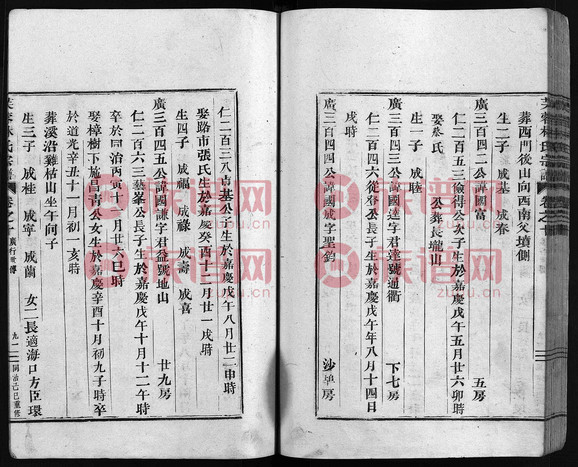 葬西門後山向西南父墳側
生二子 成基 成春
廣三百四四公諱國富 五房
仁二百五三儉得公次子生於嘉慶戊午五月廿六卯時
廣三百四四公諱國達字君達號通衢 下七房
生一子 成睦 公葬長壠山
娶蔡氏
仁二百四六從春公長子生於嘉慶戊午年八月十四日
戌時
廣三百四四公諱國成字聖鈞
仁二百三八吉基公子生於嘉慶戊午八月廿二申時
娶路市張氏生於嘉慶癸酉十二月廿一戌時
生四子 成福 成祿 成壽 成喜
廣三百四五公諱國謙字君益號地山 廿九房
仁二百六三藝峯公長子生於嘉慶戊午十月十二午時
卒於同治丙寅十一月廿六巳時
娶樟樹下施昌吉公女生於嘉慶辛酉十月初九子時卒
於道光辛丑十一月初一亥時
葬溪沿雞枯山坐午向子
生三子 成桂 成寧 成蘭 女二長適海口方臣環
芙蓉林氏宗譜 卷之十 廣行世傳 九一 同治己巳重修
族谱网
zupu.cn